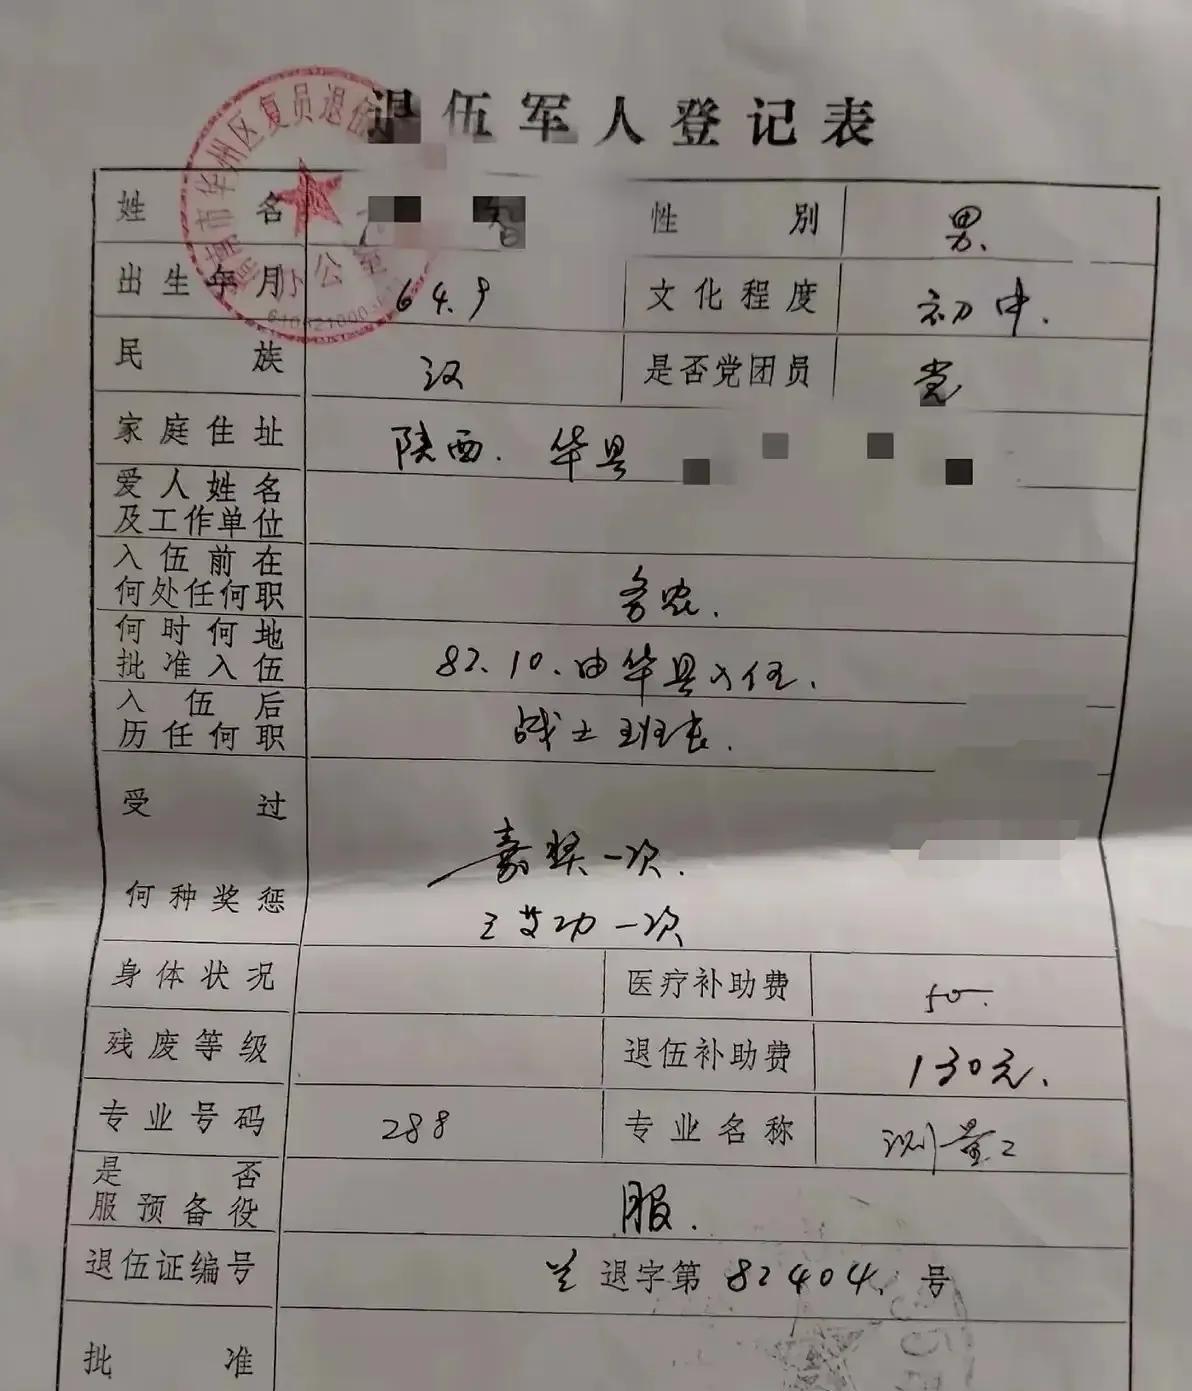 退伍军人登记表
渭南市华州区复员退伍
办公室
姓名 智 性别 男.
出生年月 64.9 文化程度 初中.
民族 汉 是否党团员 党
家庭住址 陕西. 华县
爱人姓名
及工作单位
入伍前在
何处任何职 务农.
何时何地
批准入伍 82.10.由华县入伍.
入伍后
历任何职 战士 班长.
受过
何种奖惩 嘉奖一次.
三等功一次
身体状况 医疗补助费 50.
残废等级 退伍补助费 130元.
专业号码 288 专业名称 测量2
是否
服预备役 服.
退伍证编号 兰退字第82404.号
批准